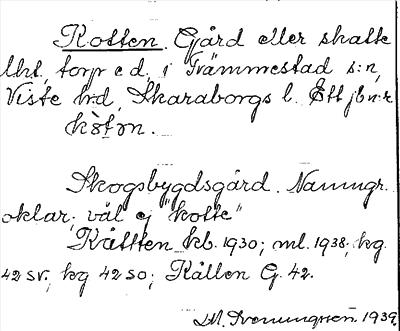 Kotten. Gård eller skatte
lht, torp e d. i Främmestad s:n,
Viste hd, Skaraborgs l. Ett jb n:r
Skogsbygdsgård. Namngr.
oklar; väl ej "kotte"
Kåtten kb. 1930; ml. 1938; kg.
42 sv., kg 42 so; Kållen G. 42.
1939